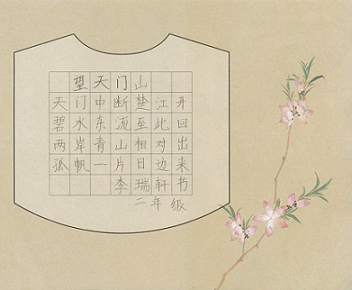 望天门山
天门中断楚江开
碧水东流至此回
两岸青山相对出
孤帆一片日边来
李瑞轩书
二年级